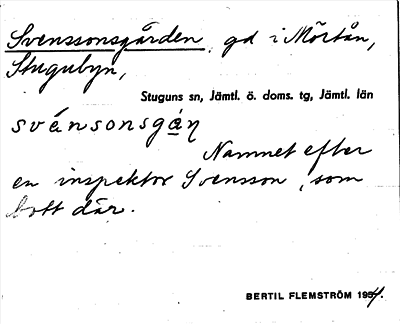 Svenssonsgården, gd i Mörtån,
Stugubyn,
Stuguns sn, Jämtl. ö. doms. tg, Jämtl. län
svánsonsgáṇ
Namnet efter
en inspektor Svensson, som
bott där.
BERTIL FLEMSTRÖM 1954.